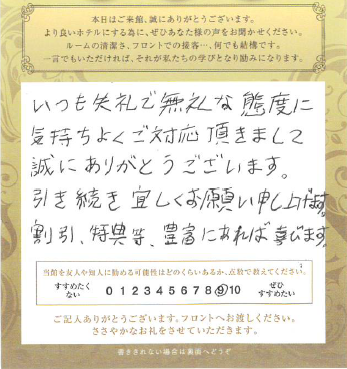 本日はご来館、誠にありがとうございます。
より良いホテルにする為に、ぜひあなた様の声をお聞かせください。
ルームの清潔さ、フロントでの接客…、何でも結構です。
一言でもいただければ、それが私たちの学びとなり励みになります。
いつも失礼で無礼な態度に
気持ちよくご対応頂きまして
誠にありがとうございます。
引き続き宜しくお願い申し上げます。
割引、特典等、豊富にあれば喜びます。
当館を友人や知人に勧める可能性はどのくらいあるか、点数で教えてください。
すすめたくない 0 1 2 3 4 5 6 7 8 9 10 ぜひすすめたい
ご記入ありがとうございます。フロントへお渡しください。
ささやかなお礼をさせていただきます。
書ききれない場合は裏面へどうぞ